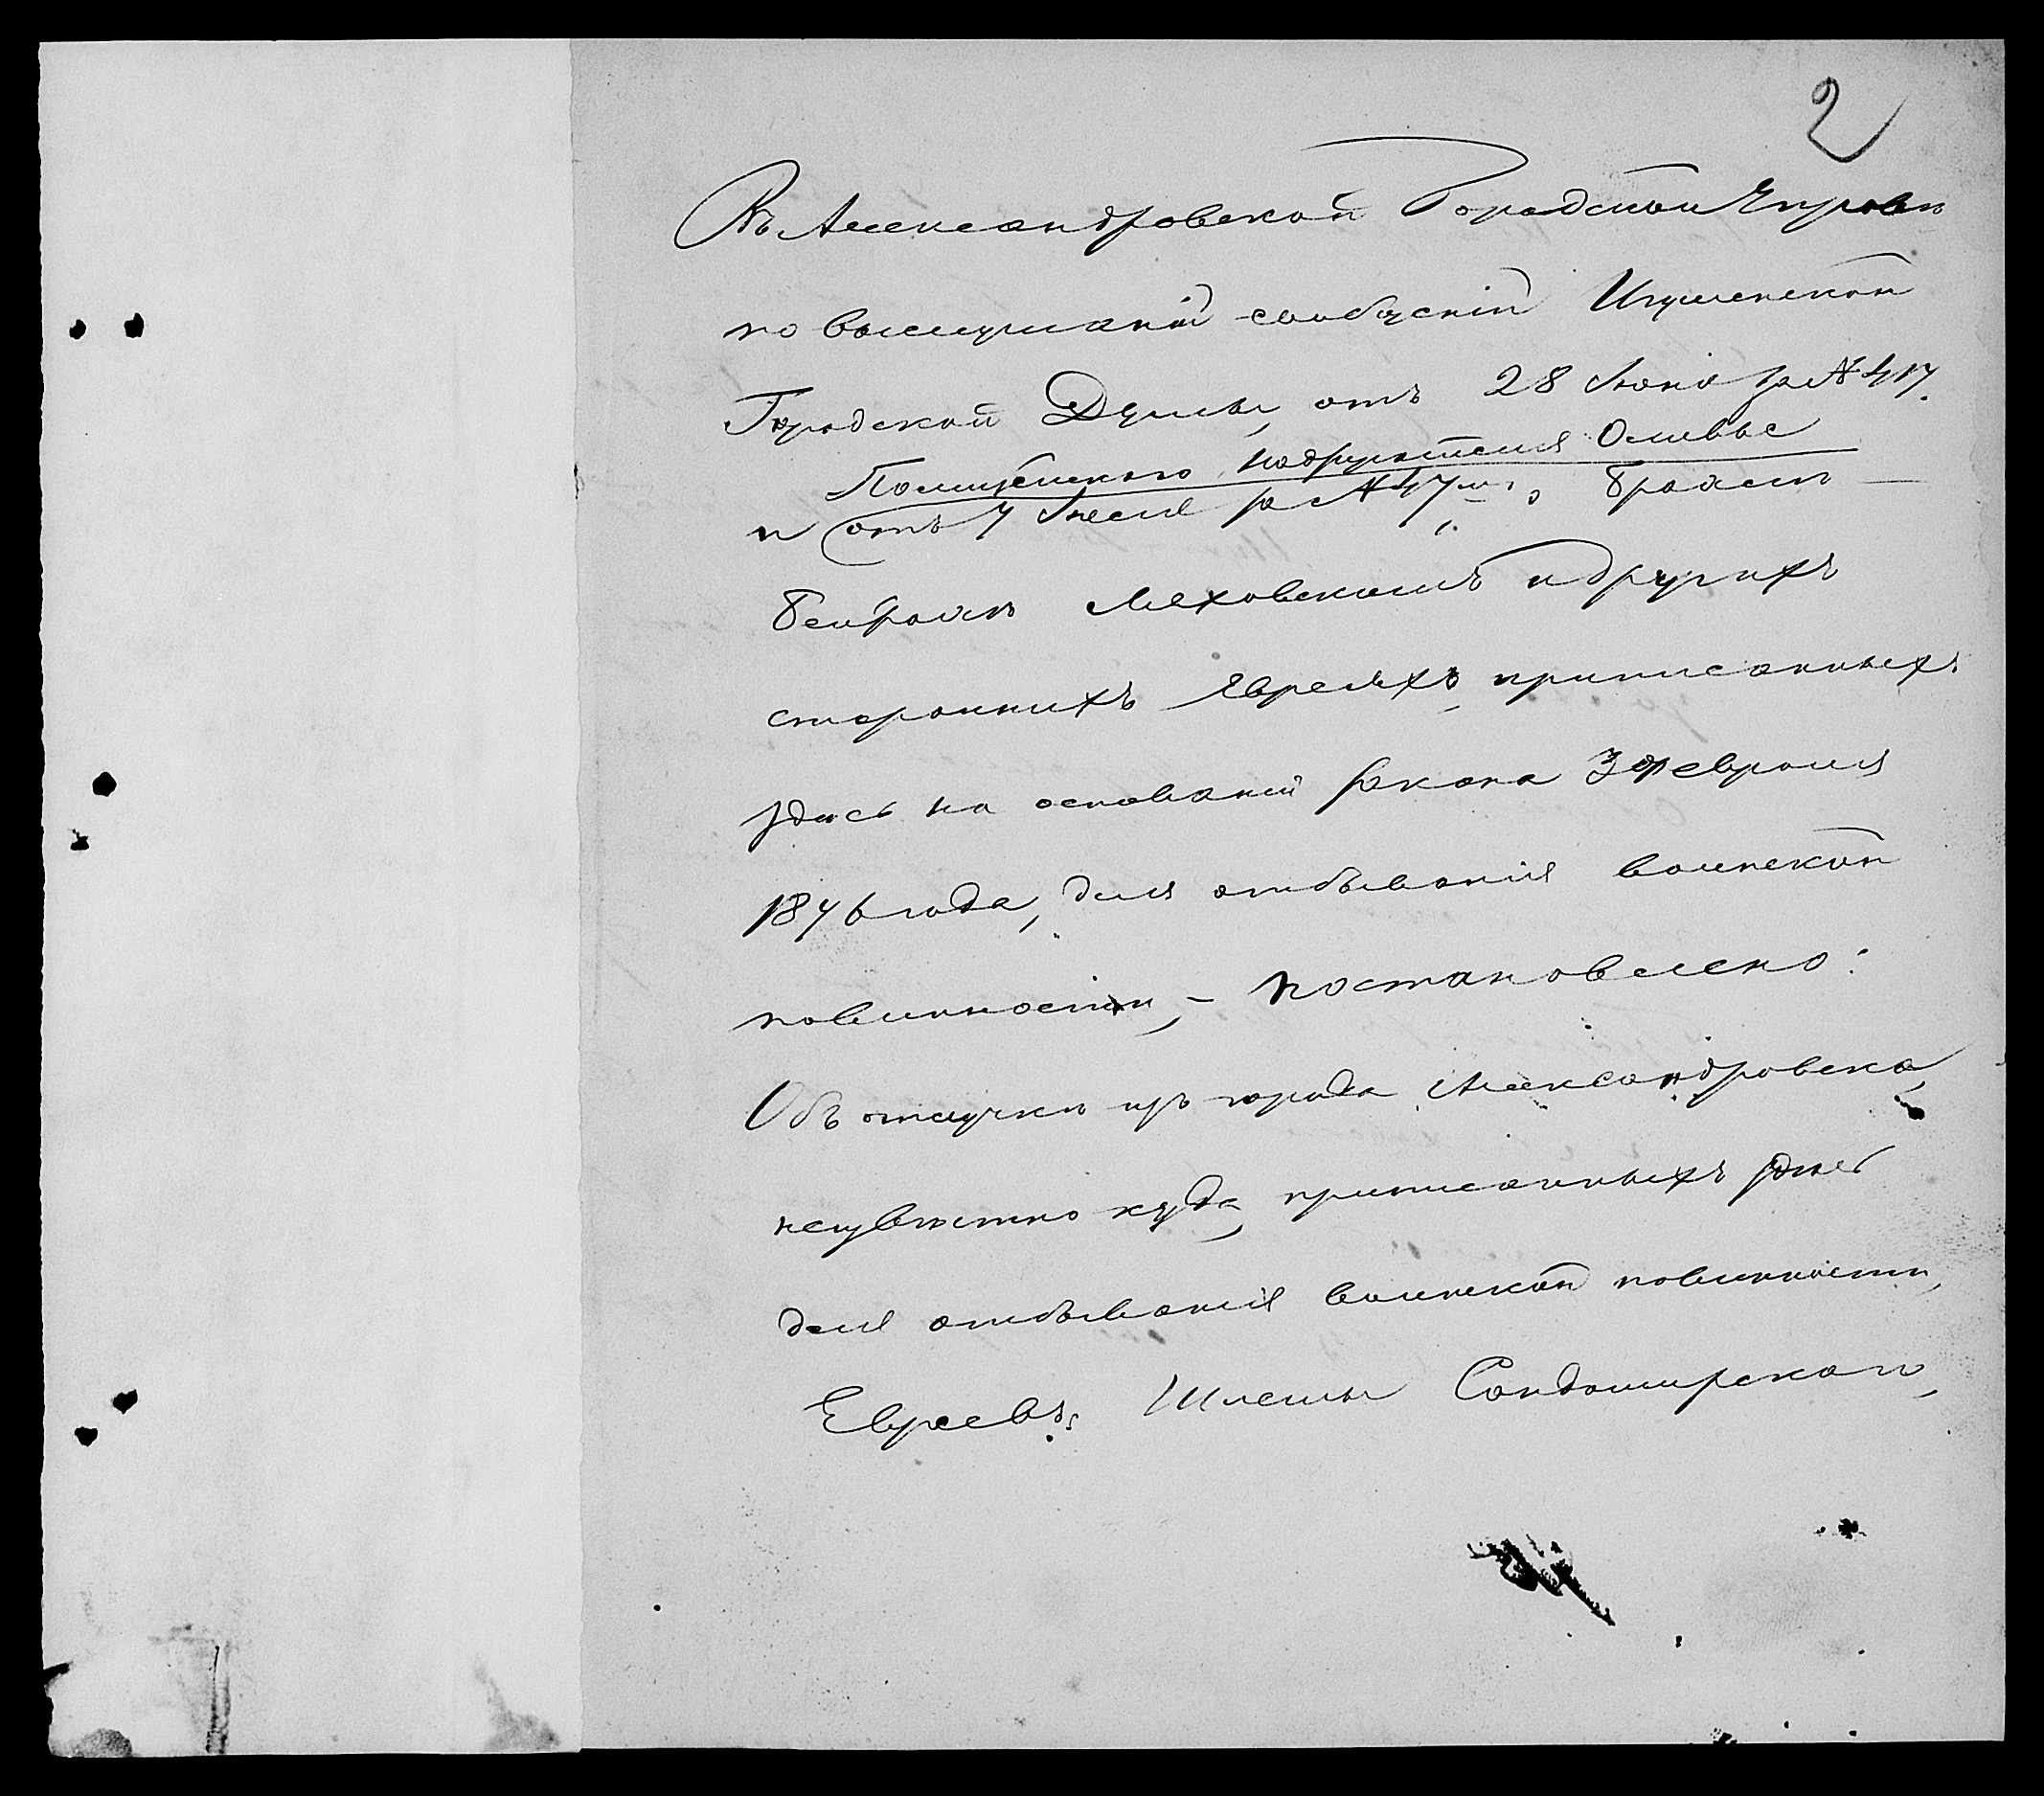 2
Въ Александровской Городской Управѣ
по выслушаніи сообщеній Игуменской
Городской Думы, отъ 28 Іюня за № 417.
Полицейскаго надзирателя
и отъ 7 Іюля за № 47
Ляховскимъ и другихъ
стороннихъ Евреяхъ, приписанныхъ
здѣсь на основаніи закона 3 Февраля
1876 года, для отбыванія воинской
повинности, – постановлено:
Объ отлучкѣ изъ города Александровска,
неизвѣстно куда, приписанныхъ здѣсь
для отбыванія воинской повинности,
Евреевъ: Шлемы Сандомирскаго,